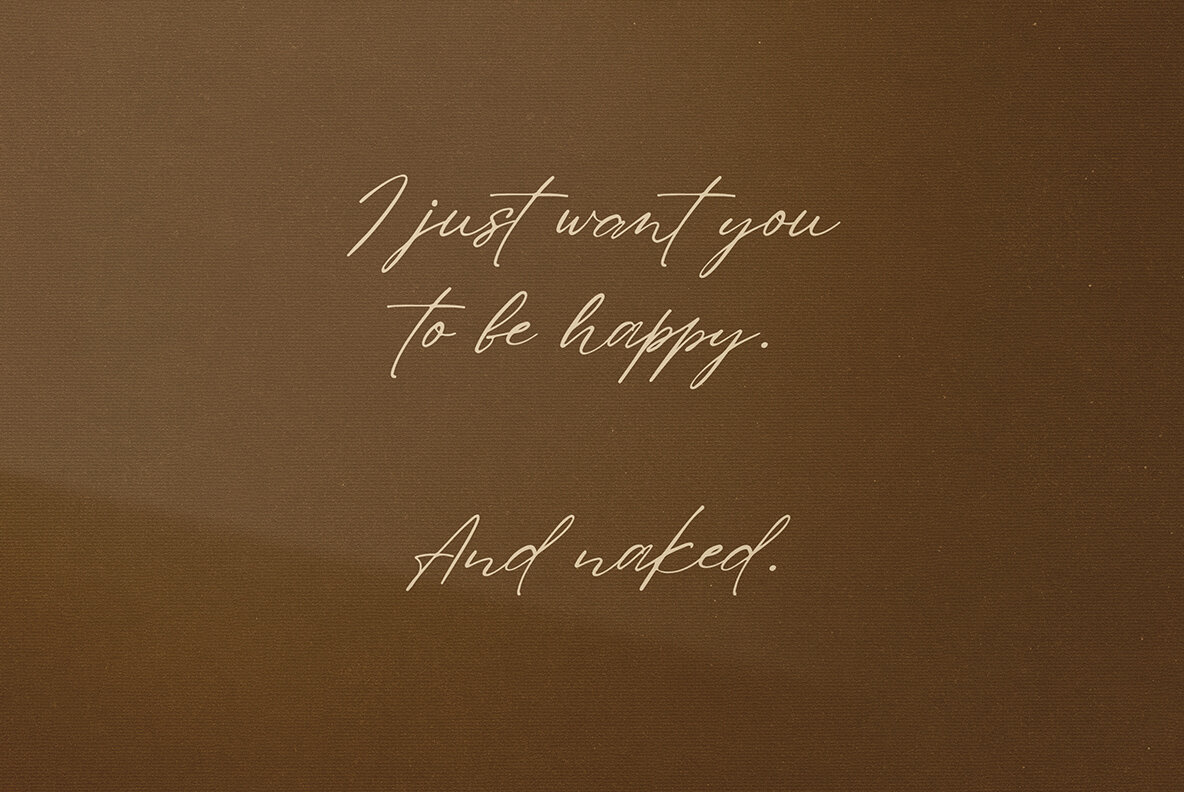 I just want you
to be happy.
And naked.